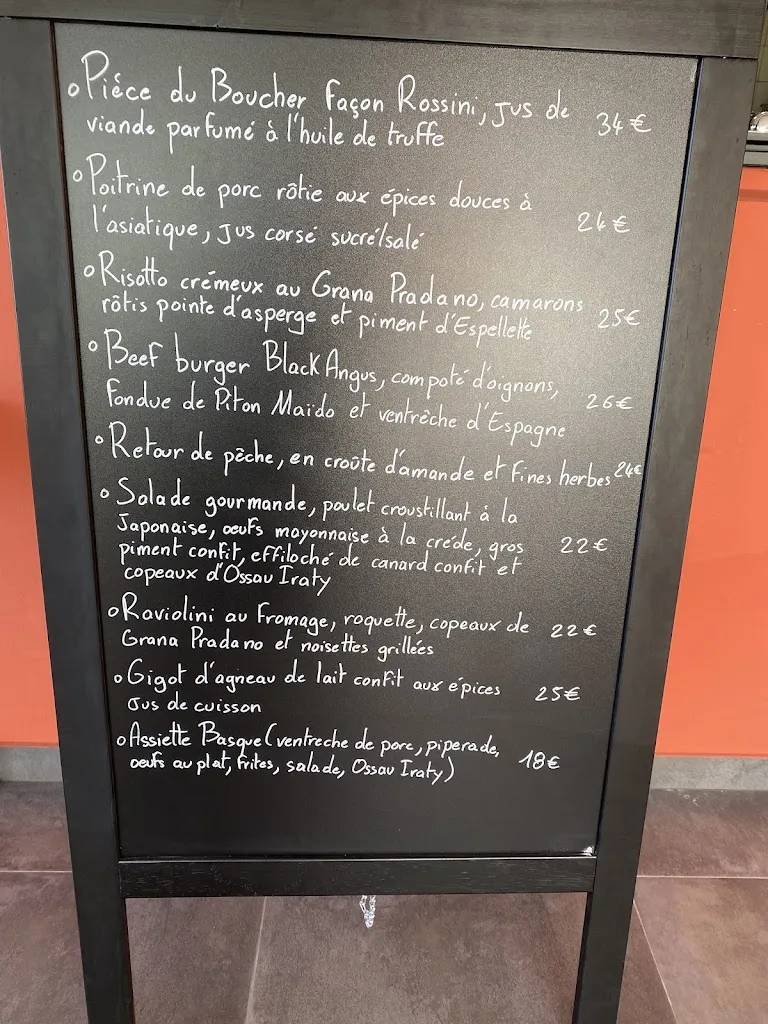 Piéce du Boucher façon Rossini, jus de
viande parfumé à l'huile de truffe 34€
Poitrine de porc rôtie aux épices douces à
l'asiatique, jus corsé sucré/salé 24€
Risotto crémeux au Grana Pradano, camarons
rôtis pointe d'asperge et piment d'Espellette 25€
Beef burger Black Angus, compoté d'oignons,
fondue de Piton Maïdo et ventrêche d'Espagne 26€
Retour de pêche, en croûte d'amande et fines herbes 24€
Salade gourmande, poulet croustillant à la
Japonaise, œufs mayonnaise à la créde, gros
piment confit, effiloché de canard confit et 22€
copeaux d'Ossau Iraty
Raviolini au fromage, roquette, copeaux de
Grana Pradano et noisettes grillées 22€
Gigot d'agneau de lait confit aux épices 25€
Jus de cuisson
Assiette Basque (ventreche de porc, piperade,
œufs au plat, frites, salade, Ossau Iraty) 18€